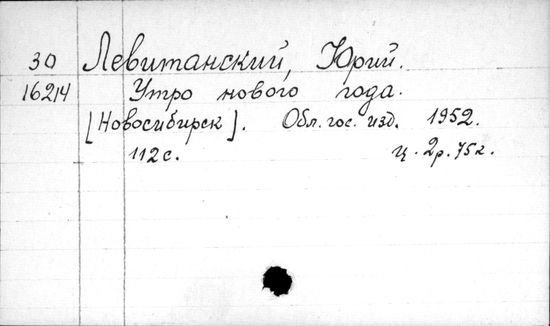 30 Левитанский, Юрий.
16214 Утро нового года.
[Новосибирск]. Обл. гос. изд. 1952.
112 с. ц. 2р. 75к.